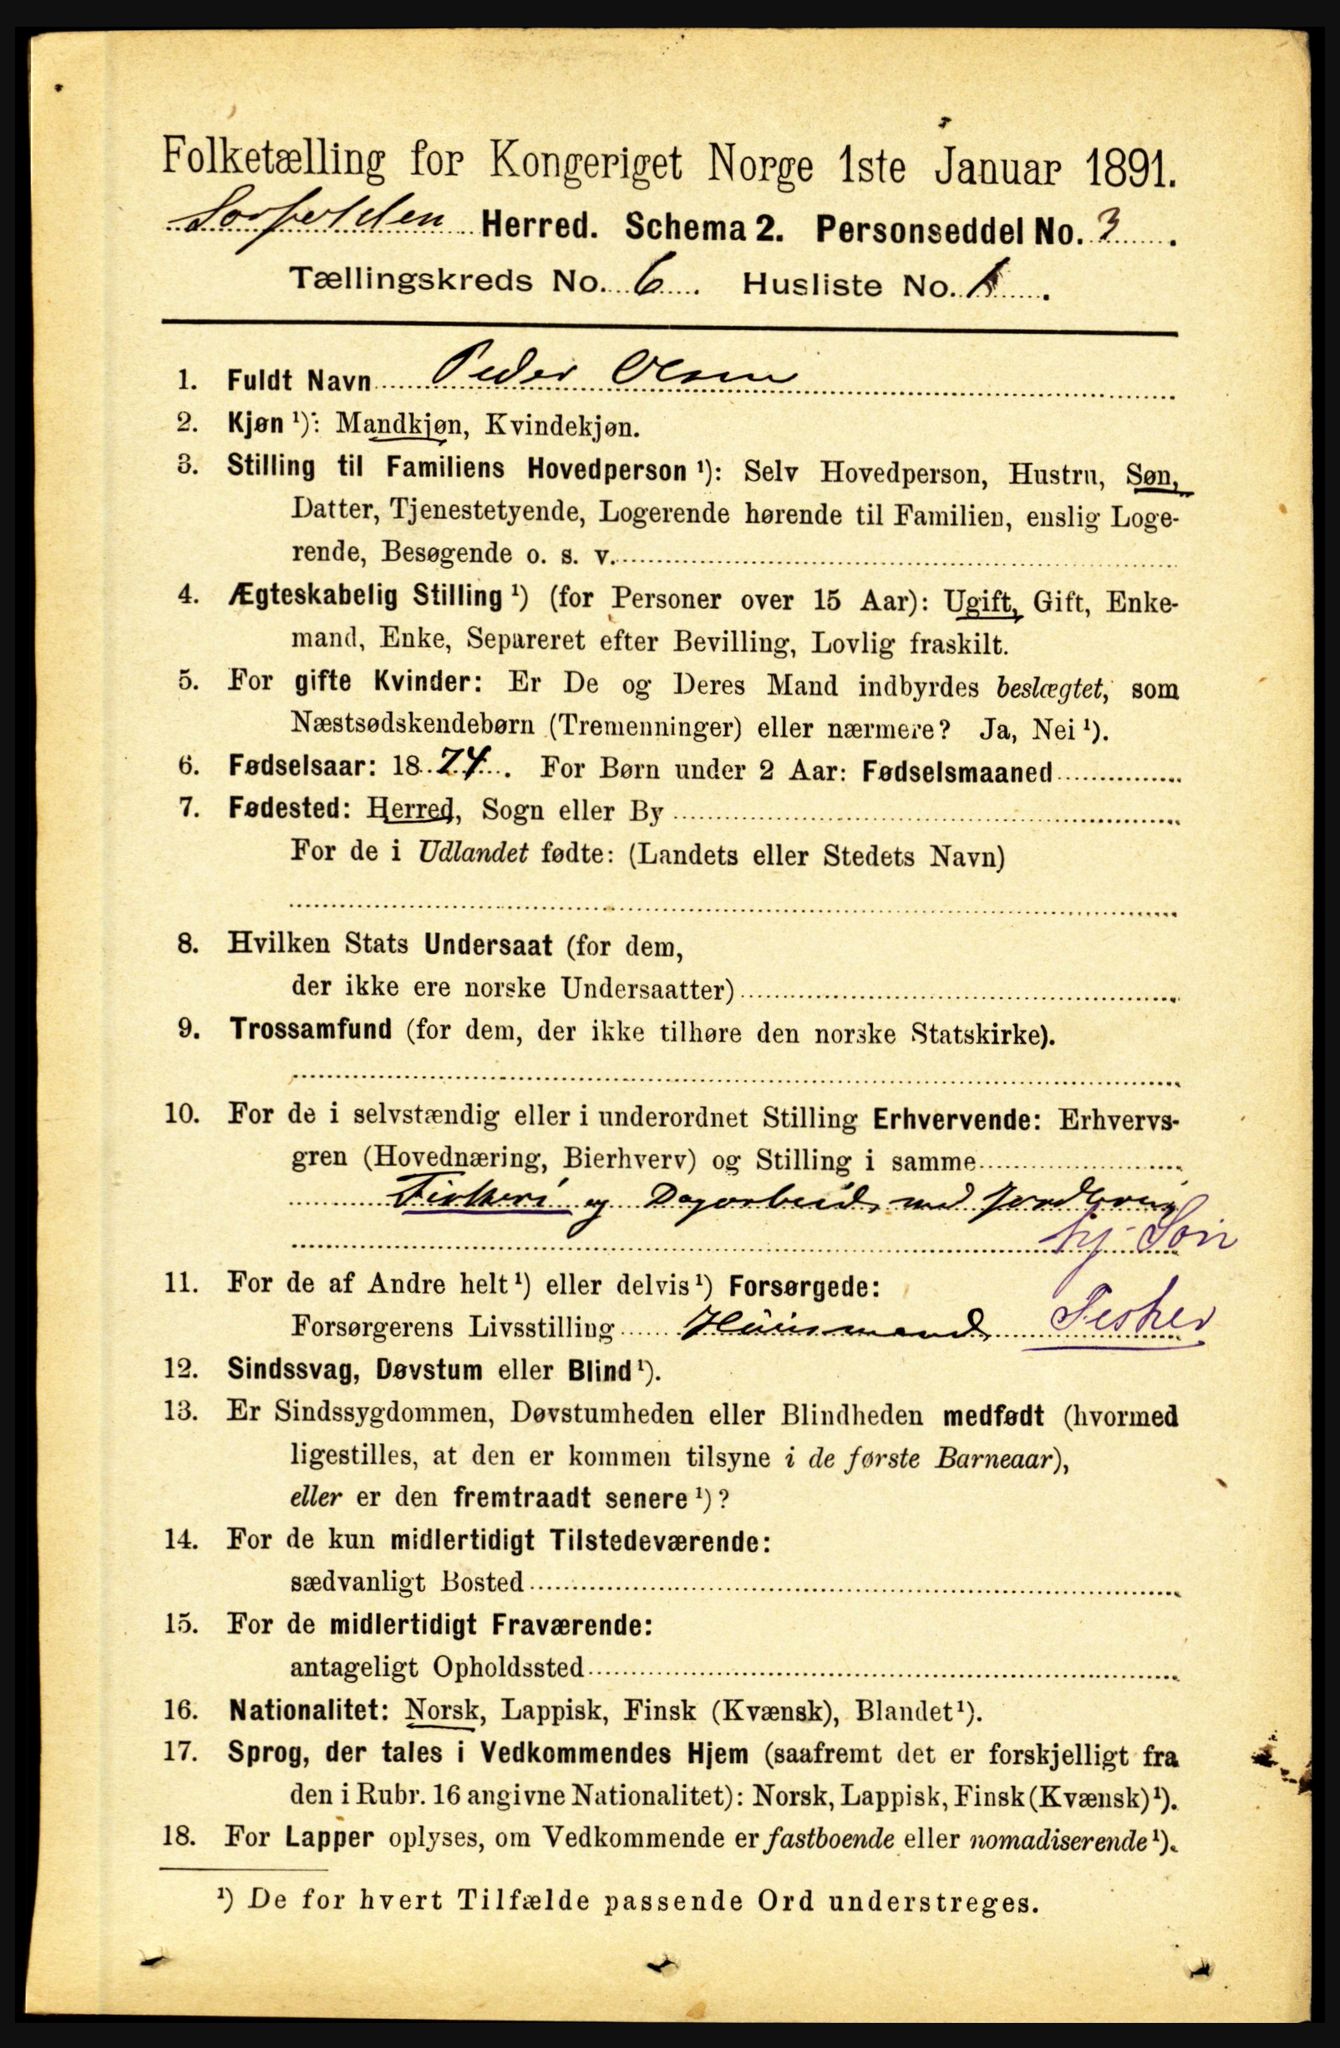 Folketælling for Kongeriget Norge 1ste Januar 1891.
Sørfolden Herred. Schema 2. Personseddel No. 3.
Tællingskreds No. 6. Husliste No. 1.
1. Fuldt Navn Peder Olsen
2. Kjøn ¹): Mandkjøn, Kvindekjøn.
3. Stilling til Familiens Hovedperson ¹): Selv Hovedperson, Hustru, Søn,
Datter, Tjenestetyende, Logerende hørende til Familien, enslig Loge-
rende, Besøgende o. s. v.
4. Ægteskabelig Stilling ¹) (for Personer over 15 Aar): Ugift, Gift, Enke-
mand, Enke, Separeret efter Bevilling, Lovlig fraskilt.
5. For gifte Kvinder: Er De og Deres Mand indbyrdes beslægtet, som
Næstsødskendebørn (Tremenninger) eller nærmere? Ja, Nei ¹).
6. Fødselsaar: 1874. For Børn under 2 Aar: Fødselsmaaned
7. Fødested: Herred, Sogn eller By
For de i Udlandet fødte: (Landets eller Stedets Navn)
8. Hvilken Stats Undersaat (for dem,
der ikke ere norske Undersaatter)
9. Trossamfund (for dem, der ikke tilhøre den norske Statskirke).
10. For de i selvstændig eller i underordnet Stilling Erhvervende: Erhvervs-
gren (Hovednæring, Bierhverv) og Stilling i samme
Fiskeri og Dagarbeide med Jordbrug
hj. Søn
11. For de af Andre helt ¹) eller delvis ¹) Forsørgede:
Forsørgerens Livsstilling Huusmand Fisker
12. Sindssvag, Døvstum eller Blind ¹).
13. Er Sindssygdommen, Døvstumheden eller Blindheden medfødt (hvormed
ligestilles, at den er kommen tilsyne i de første Barneaar),
eller er den fremtraadt senere ¹)?
14. For de kun midlertidigt Tilstedeværende:
sædvanligt Bosted
15. For de midlertidigt Fraværende:
antageligt Opholdssted
16. Nationalitet: Norsk, Lappisk, Finsk (Kvænsk), Blandet ¹).
17. Sprog, der tales i Vedkommendes Hjem (saafremt det er forskjelligt fra
den i Rubr. 16 angivne Nationalitet): Norsk, Lappisk, Finsk (Kvænsk) ¹).
18. For Lapper oplyses, om Vedkommende er fastboende eller nomadiserende ¹).
¹) De for hvert Tilfælde passende Ord understreges.